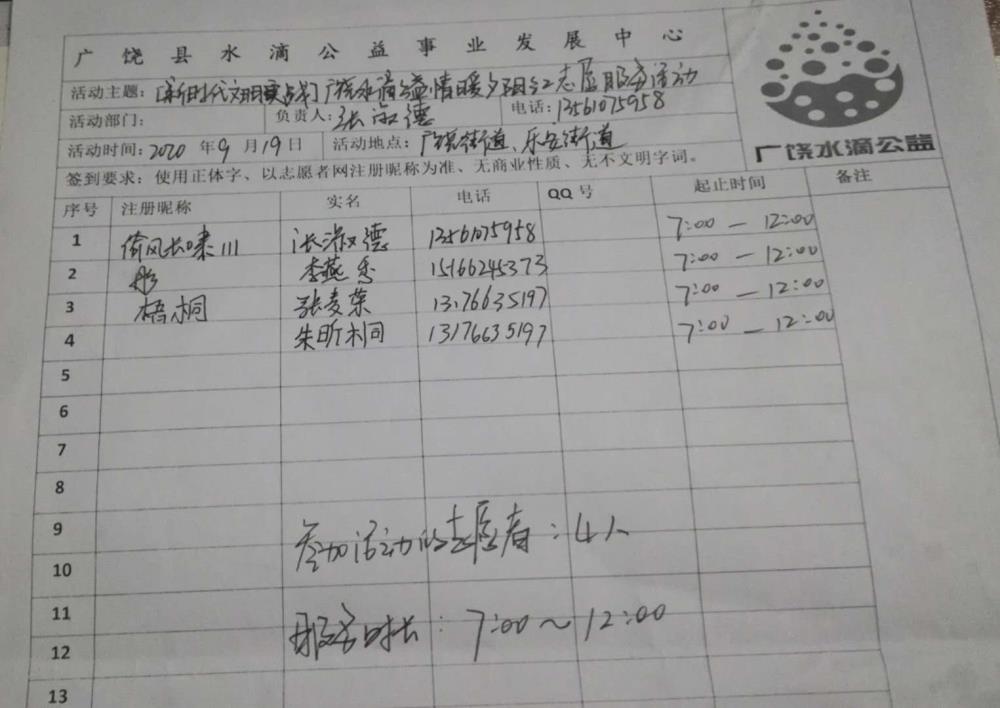 广饶县水滴公益事业发展中心
活动主题：[新时代文明实践]广饶水滴公益情暖夕阳红志愿服务活动
活动部门： 负责人：张淑德 电话：13561075958
活动时间：2020年9月19日 活动地点：广饶街道、乐安街道
签到要求：使用正体字、以志愿者网注册昵称为准、无商业性质、无不文明字词。
序号 注册昵称 实名 电话 QQ号 起止时间 备注
1 倚风长啸111 张淑德 13561075958 7:00—12:00
2 彤 李燕香 15166245373 7:00—12:00
3 梧桐 张麦荣 13176635197 7:00—12:00
4 朱昕桐 13176635197 7:00—12:00
5
6
7
8
9
参加活动的志愿者：4人
10
11
服务时长：7:00～12:00
12
13
广饶水滴公益